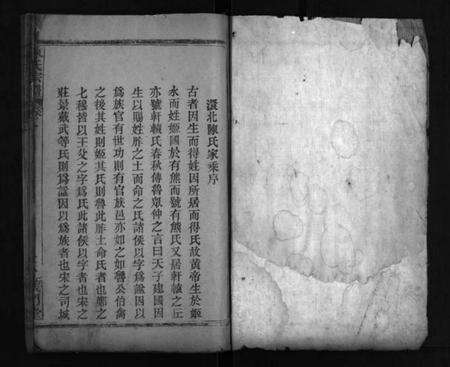 漵北陳氏家乘序
古者因生而得姓因所居而得氏故黃帝生於姬
水而姓姬國於有熊而號有熊氏又居軒轅之丘
亦號軒轅氏春秋傳魯眾仲之言曰天子建國因
生以賜姓胙之土而命之氏諸侯以字為諡因以
為族官有世功則有官族邑亦如之如魯公伯禽
之後其姓則姬其氏則魯此胙土命氏者也鄭之
七穆皆以王父之字為氏此諸侯以字者也宋之
莊景戴武等氏則為諡因以為族者也宋之司城